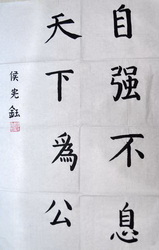 自强不息
天下為公
侯光鈺